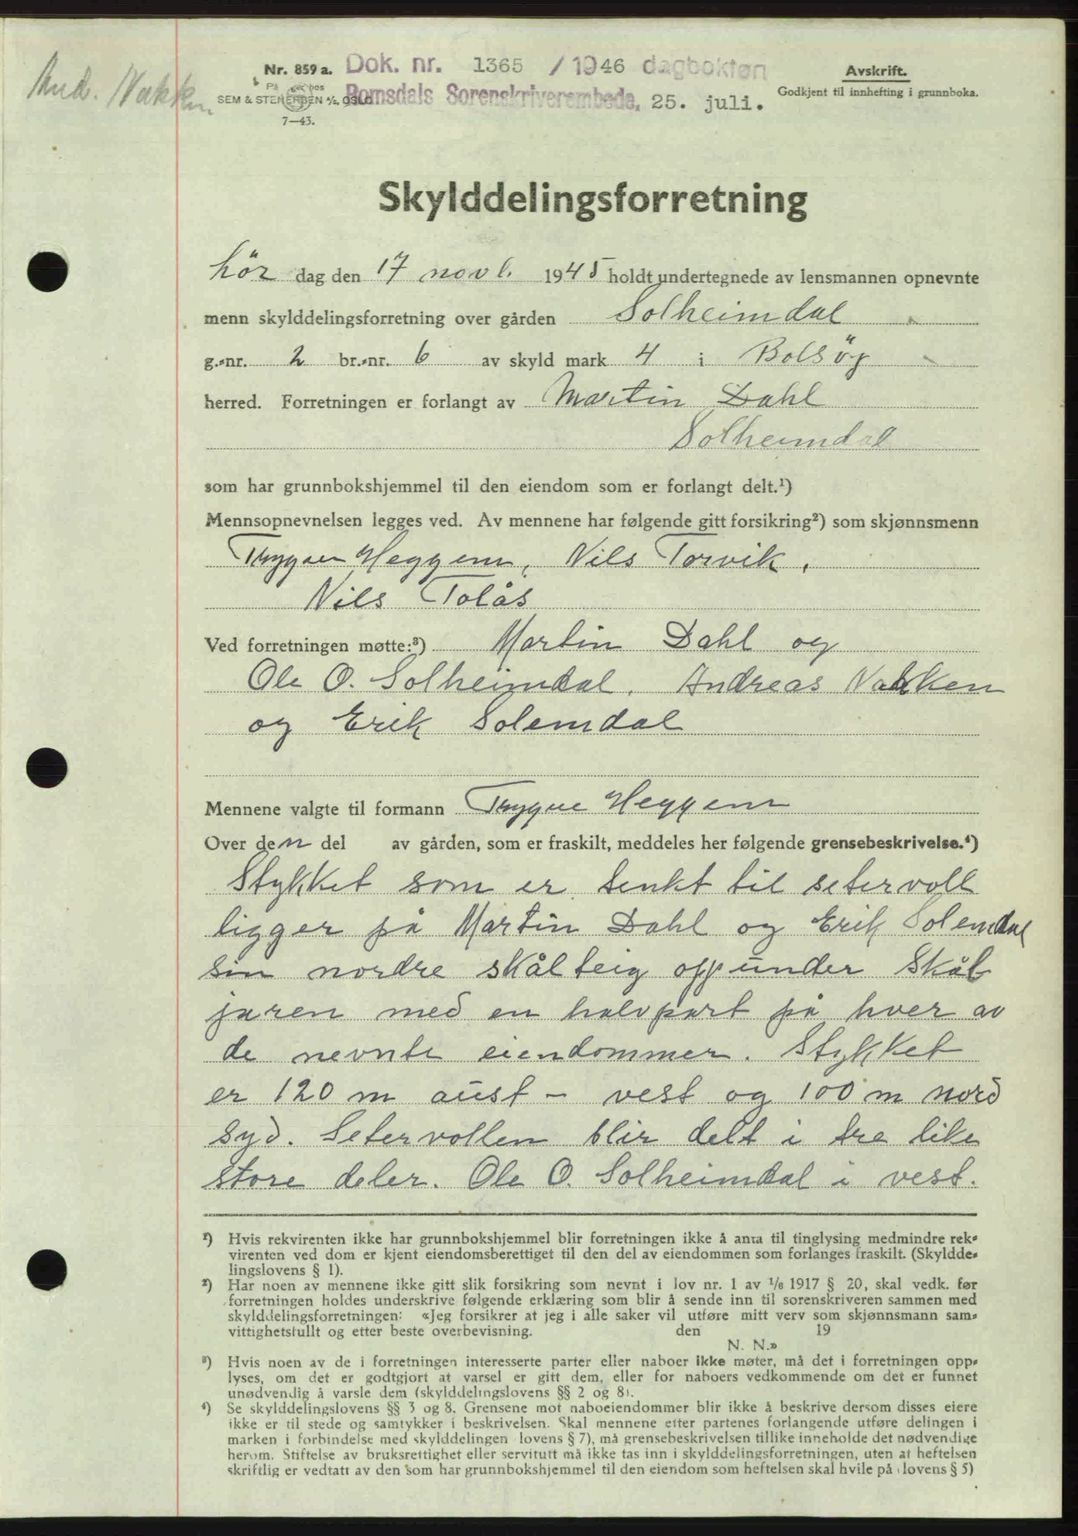 And. Nakken
Nr. 859 a. Dok. nr. 1365 / 1946 dagboken
Avskrift.
SEM & STENERSEN A/S, OSLO Romsdals Sorenskriverembede, 25. juli.
Godkjent til innhefting i grunnboka.
7—43.
Skylddelingsforretning
hör dag den 17 novb. 1945 holdt undertegnede av lensmannen opnevnte
menn skylddelingsforretning over gården Solheimdal
g.-nr. 2 br.-nr. 6 av skyld mark 4 i Bolsöy
herred. Forretningen er forlangt av Martin Dahl
Solheimdal
som har grunnbokshjemmel til den eiendom som er forlangt delt.¹)
Mennsopnevnelsen legges ved. Av mennene har følgende gitt forsikring²) som skjønnsmenn
Trygve Heggem, Nils Torvik,
Nils Tolås
Ved forretningen møtte:³) Martin Dahl og
Ole O. Solheimdal. Andreas Nakken
og Erik Solemdal
Mennene valgte til formann Trygve Heggem
Over den del av gården, som er fraskilt, meddeles her følgende grensebeskrivelse.⁴)
Stykket som er tenkt til setervoll
ligger på Martin Dahl og Erik Solemdal
sin nordre skålteig opp under Skål
jaren med en halvpart på hver av
de nevnte eiendommer. Stykket
er 120 m aust - vest og 100 m nord
syd. Setervollen blir delt i tre like
store deler. Ole O. Solheimdal i vest.
¹) Hvis rekvirenten ikke har grunnbokshjemmel blir forretningen ikke å anta til tinglysing medmindre rek-
virenten ved dom er kjent eiendomsberettiget til den del av eiendommen som forlanges fraskilt. (Skyldde-
lingslovens § 1).
²) Har noen av mennene ikke gitt slik forsikring som nevnt i lov nr. 1 av 1/6 1917 § 20, skal vedk. før
forretningen holdes underskrive følgende erklæring som blir å sende inn til sorenskriveren sammen med
skylddelingsforretningen: «Jeg forsikrer at jeg i alle saker vil utføre mitt verv som skjønnsmann sam-
vittighetsfullt og etter beste overbevisning. den 19
N. N.»
³) Hvis noen av de i forretningen interesserte parter eller naboer ikke møter, må det i forretningen opp-
lyses, om det er godtgjort at varsel er gitt dem, eller for naboers vedkommende om det er funnet
unødvendig å varsle dem (skylddelingslovens §§ 2 og 8).
⁴) Se skylddelingslovens §§ 3 og 8. Grensene mot naboeiendommer blir ikke å beskrive dersom disses eiere
ikke er til stede og samtykker i beskrivelsen. Skal mennene etter partenes forlangende utføre delingen i
marken i forbindelse med skylddelingen (lovens § 7), må grensebeskrivelsen tillike inneholde det nødvendige
herom. Stiftelse av bruksrettighet eller servitutt må ikke tas inn i skylddelingsforretningen, uten at heftelsen
skriftlig er vedtatt av den som har grunnbokshjemmel til den eiendom som heftelsen skal hvile på (lovens § 5)